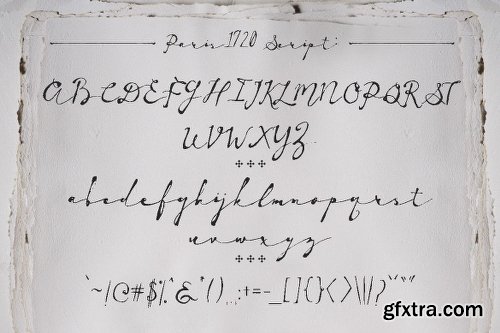 Paris 1720 Script:
ABCDEFGHIJKLMNOPQRST
UVWXYZ
abcdefghijklmnopqrst
uvwxyz
`~!@#$%^&*(),.;:+=-_[]{}<>\|/?""''
gfxtra.com